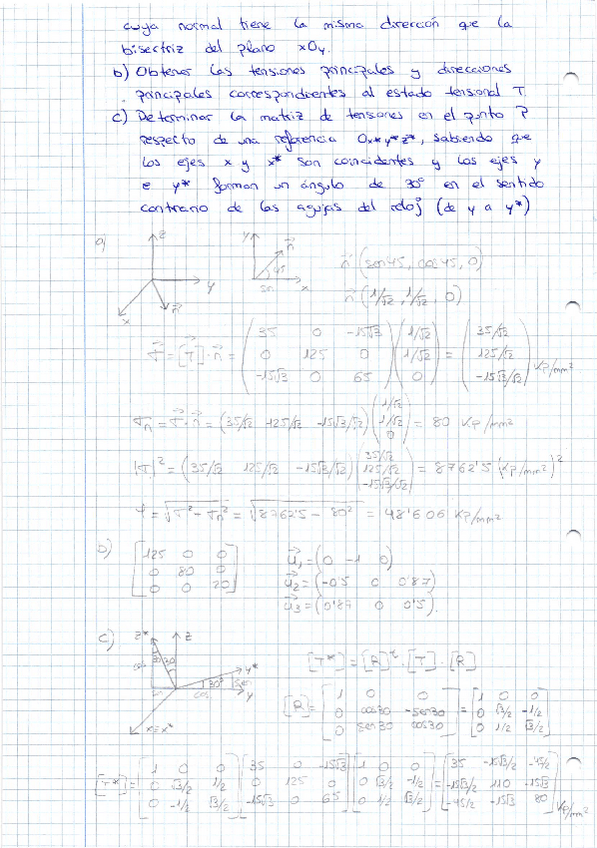 cuya normal tiene la misma dirección que la
bisectriz del plano xOy.
b) Obtener las tensiones principales y direcciones
principales correspondientes al estado tensional T.
c) Determinar la matriz de tensiones en el punto P
respecto de una referencia Ox*y*z*, sabiendo que
los ejes x y x* son coincidentes y los ejes y
e y* forman un ángulo de 30° en el sentido
contrario de las agujas del reloj (de y a y*)
a) z y x n⃗ y n⃗ 45 x n⃗(sen45, cos45, 0)
n⃗(1/√2, 1/√2, 0)
σ⃗ = [T]·n⃗ = (35 0 -15√3; 0 125 0; -15√3 0 65)(1/√2; 1/√2; 0) = (35/√2; 125/√2; -15√3/√2) Kp/mm²
σn = σ⃗·n⃗ = (35/√2 125/√2 -15√3/√2)(1/√2; 1/√2; 0) = 80 Kp/mm²
|σ|² = (35/√2 125/√2 -15√3/√2)(35/√2; 125/√2; -15√3/√2) = 8762'5 (Kp/mm²)²
τ = √σ² - σn² = √8762'5 - 80² = 48'606 Kp/mm²
b) [125 0 0; 0 80 0; 0 0 20] u⃗1 = (0 -1 0)
u⃗2 = (-0'5 0 0'87)
u⃗3 = (0'87 0 0'5).
c) z* z y* 30° y x≡x* [T*] = [R]t · [T] · [R]
[R] = [1 0 0; 0 cos30 -sen30; 0 sen30 cos30] = [1 0 0; 0 √3/2 -1/2; 0 1/2 √3/2]
[T*] = [1 0 0; 0 √3/2 1/2; 0 -1/2 √3/2][35 0 -15√3; 0 125 0; -15√3 0 65][1 0 0; 0 √3/2 -1/2; 0 1/2 √3/2] = [35 -15√3/2 -45/2; -15√3/2 110 -15√3; -45/2 -15√3 80] Kp/mm²